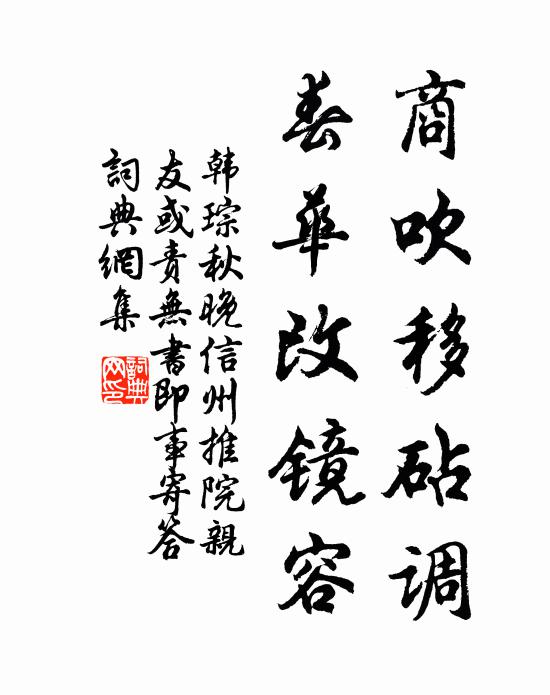 商吹移砧调
春华改镜容
韩琮秋晚信州推院親
友或责無書即事寄答
詞典網集
詞典
网印